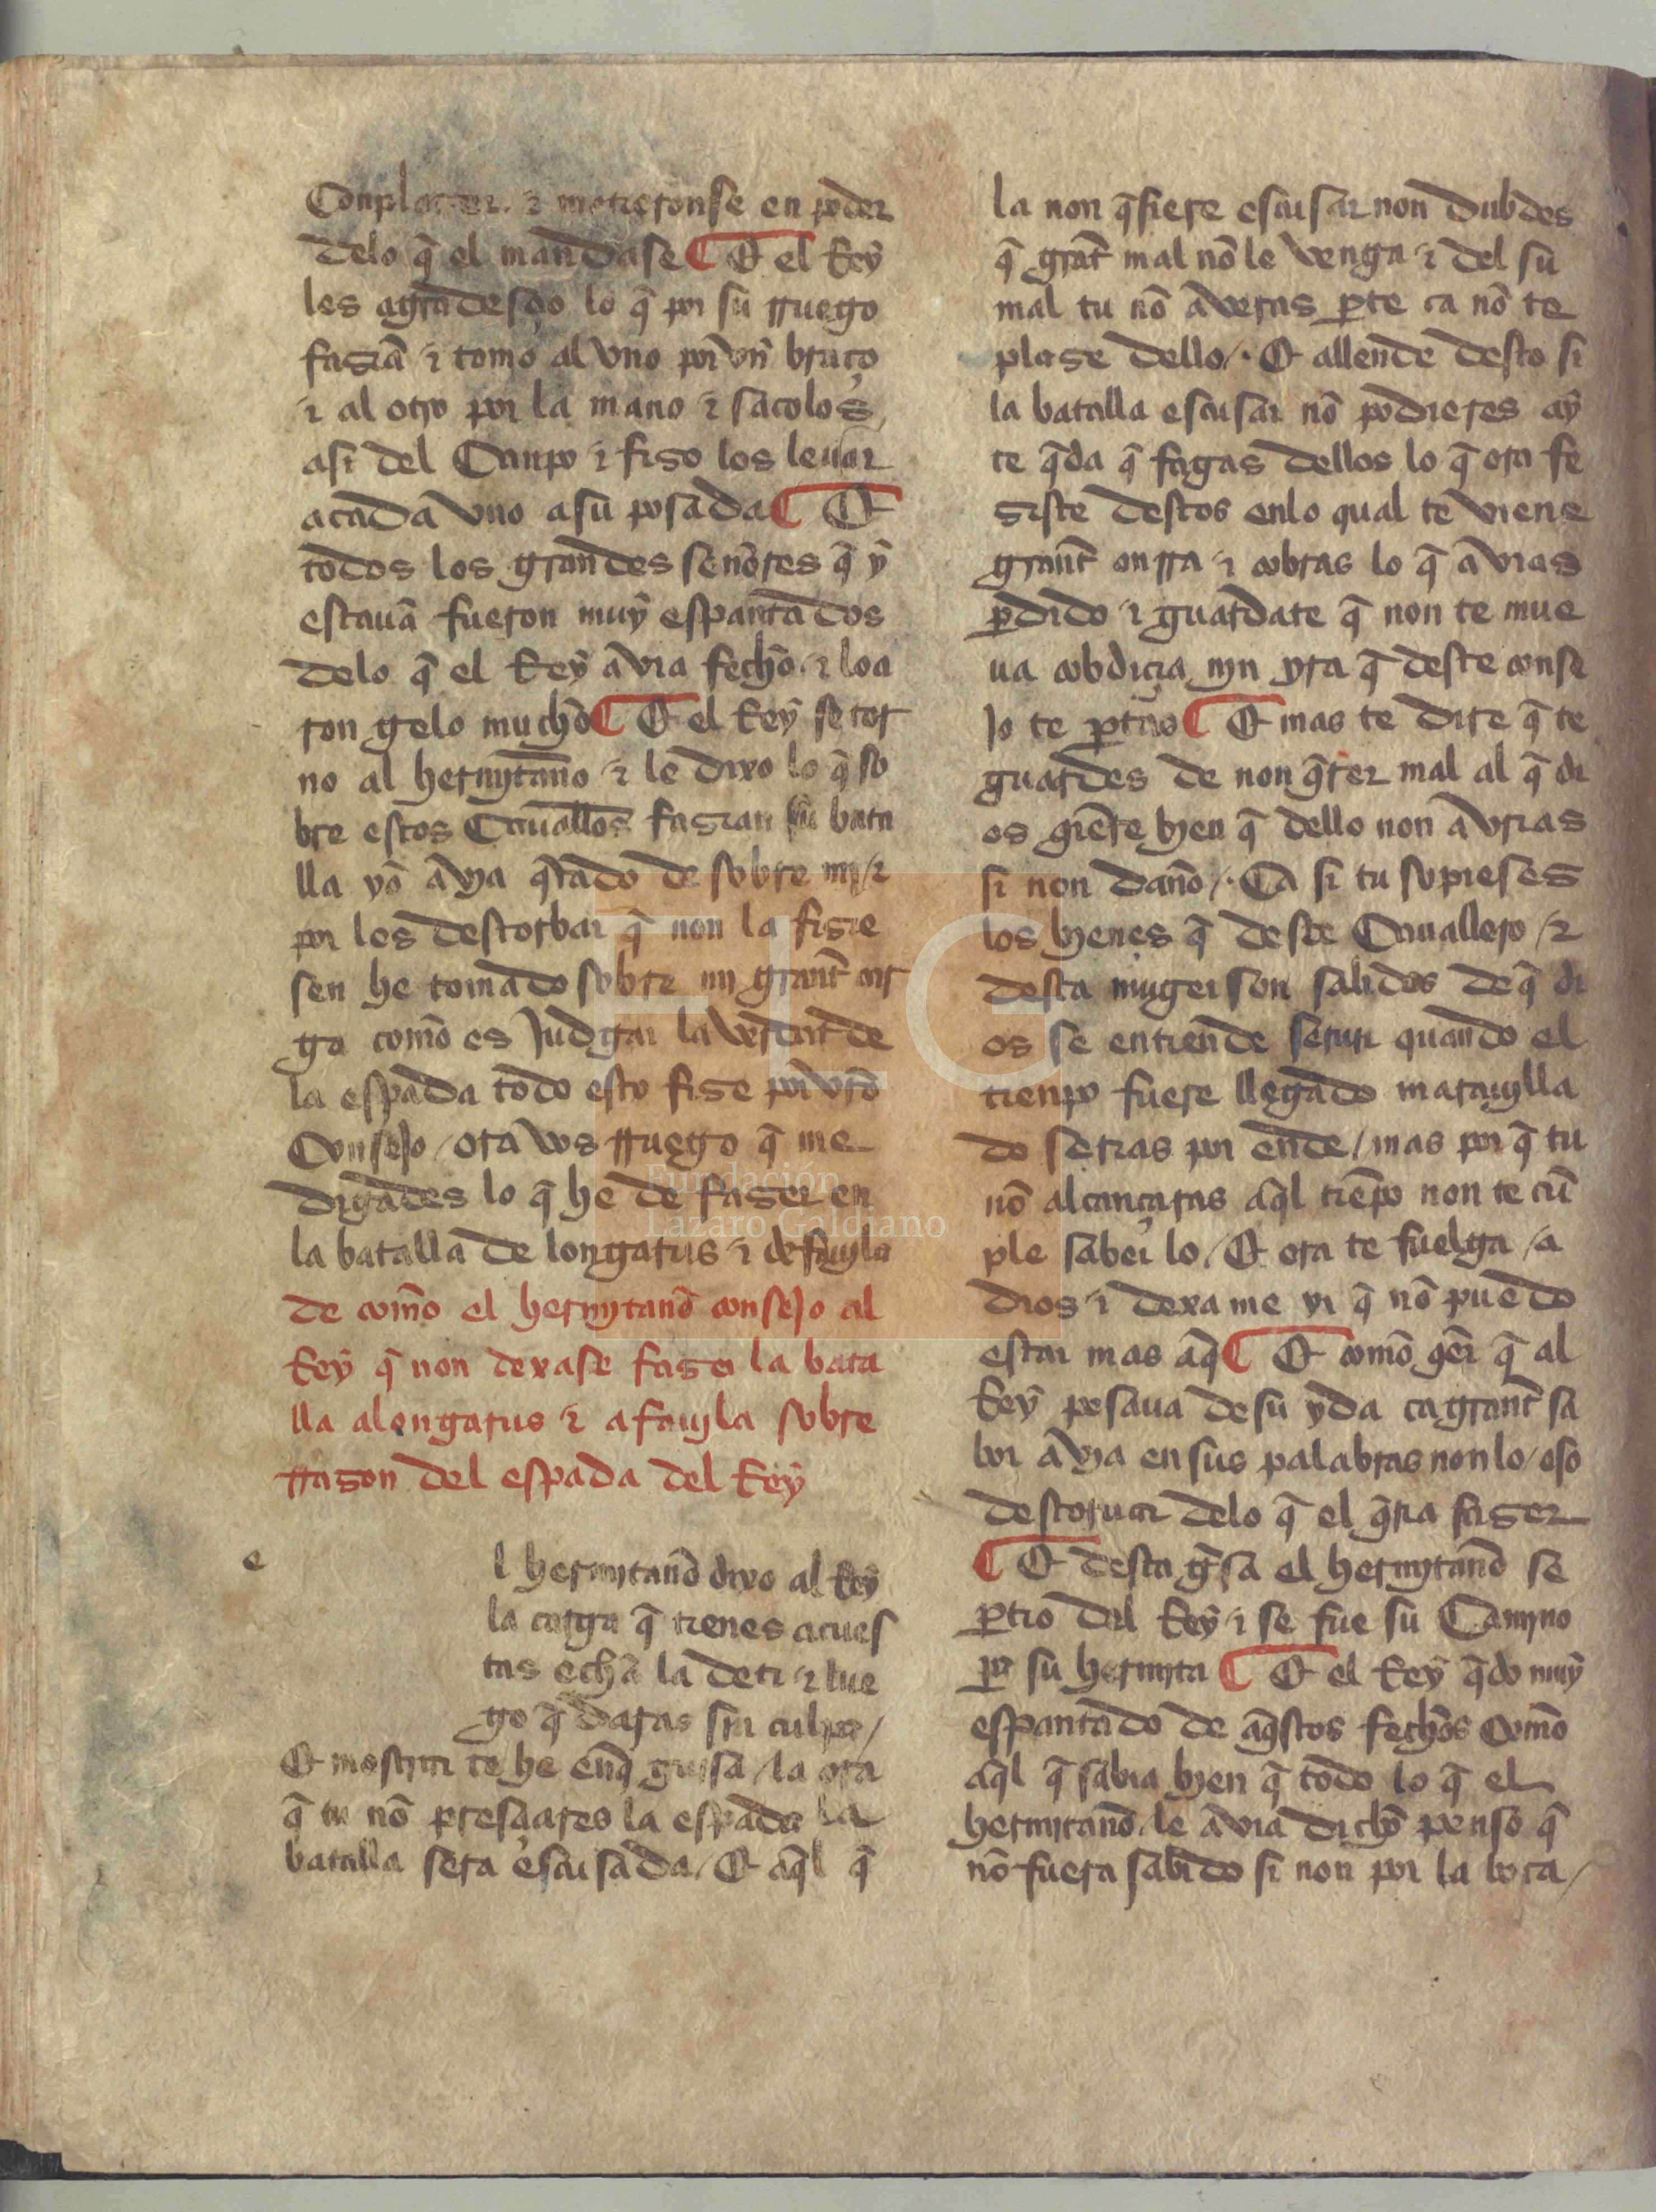 Conplazer. & metieronse en poder
delo q̃ el mandase ¶ Et el Rey
les agradesçio lo q̃ por su rruego
fazia᷈ & tomo al vno por vn braço
& al otro por la mano & sacolos
asi del Canpo & fizo los leuar
acada vno asu posada ¶ Et
todos los grandes señores q̃ y
estaua᷈ fueron muy espantados
delo q̃ el Rey avia fecho & loa
ron gelo mucho ¶ Et el Rey se tor
no al hermitaño & le dixo lo q̃ so
bre estos Cauallos fazian su bata
lla yo avia q̃tado de sobre mi &
por les destorbar q̃ non la fizie
sen he tomado sobre mi grant car
ga como es Judgar la verdat de
la espada todo esto fize por vr̃o
Consejo / ora vos rruego q̃ me
digades lo q̃ he de fazer en
la batalla de longarus & de fauila
de como el hermitaño consejo al
Rey q̃ non dexase fazer la bata
lla alongarus & a fauila sobre
rrazon del espada del Rey
e l hermitaño dixo al Rey
la carga q̃ tienes acues
tas echa la de ti & lue
go q̃daras sin culpa /
Et mostrar te he en q̃ guisa / la ora
q̃ tu no᷈ presçiares la espada la
batalla sera escusada / Et aq̃l q̃
la non q̃siere escusar non dubdes
q̃ grat᷈ mal no᷈ le venga & del su
mal tu no᷈ averas p̱te ca no᷈ te
plase dello /. Et allende desto si
la batalla escusar no᷈ podieres ay
te q̃da q̃ fagas dellos lo q̃ ora fe
ziste destos enlo qual te viene
grant onrra & cobras lo q̃ avias
p̱dido & guardate q̃ non te mue
ua cobdiçia nin yra q̃ deste conse
Jo te p̱tas ¶ Et mas te dire q̃ te
guardes de non q̃rer mal al q̃ di
os q̃ere bien q̃ dello non avrias
si non daño /. Ca si tu sopieses
los bienes q̃ deste Cauallero / &
desta muger son salidos de q̃ di
os se entiende seruir quando el
tienpo fuere llegado marauilla
do serias por ende / mas por q̃ tu
no᷈ alcançaras aq̃l tie᷈po non te cu᷈
ple saber lo / Et ora te fuelga / a
dios & dexa me yr q̃ no᷈ puedo
estar mas aq̃ ¶ Et como q̃er q̃ al
Rey pesaua de su yda ca grant sa
bor avia en sus palabras non lo / oso
destoruar delo q̃ el q̃ria fazer
¶ Et desta g̃sa el hermitaño se
p̱tio del Rey & se fue su Camino
p̱a su hermita ¶ Et el Rey q̃do muy
espantado de aq̃stos fechos como
aq̃l q̃ sabia bien q̃ todo lo q̃ el
hermitaño le avia dicho penso q̃
no᷈ fuera sabido si non por la boca /
FLG
Fundación
Lázaro Galdiano